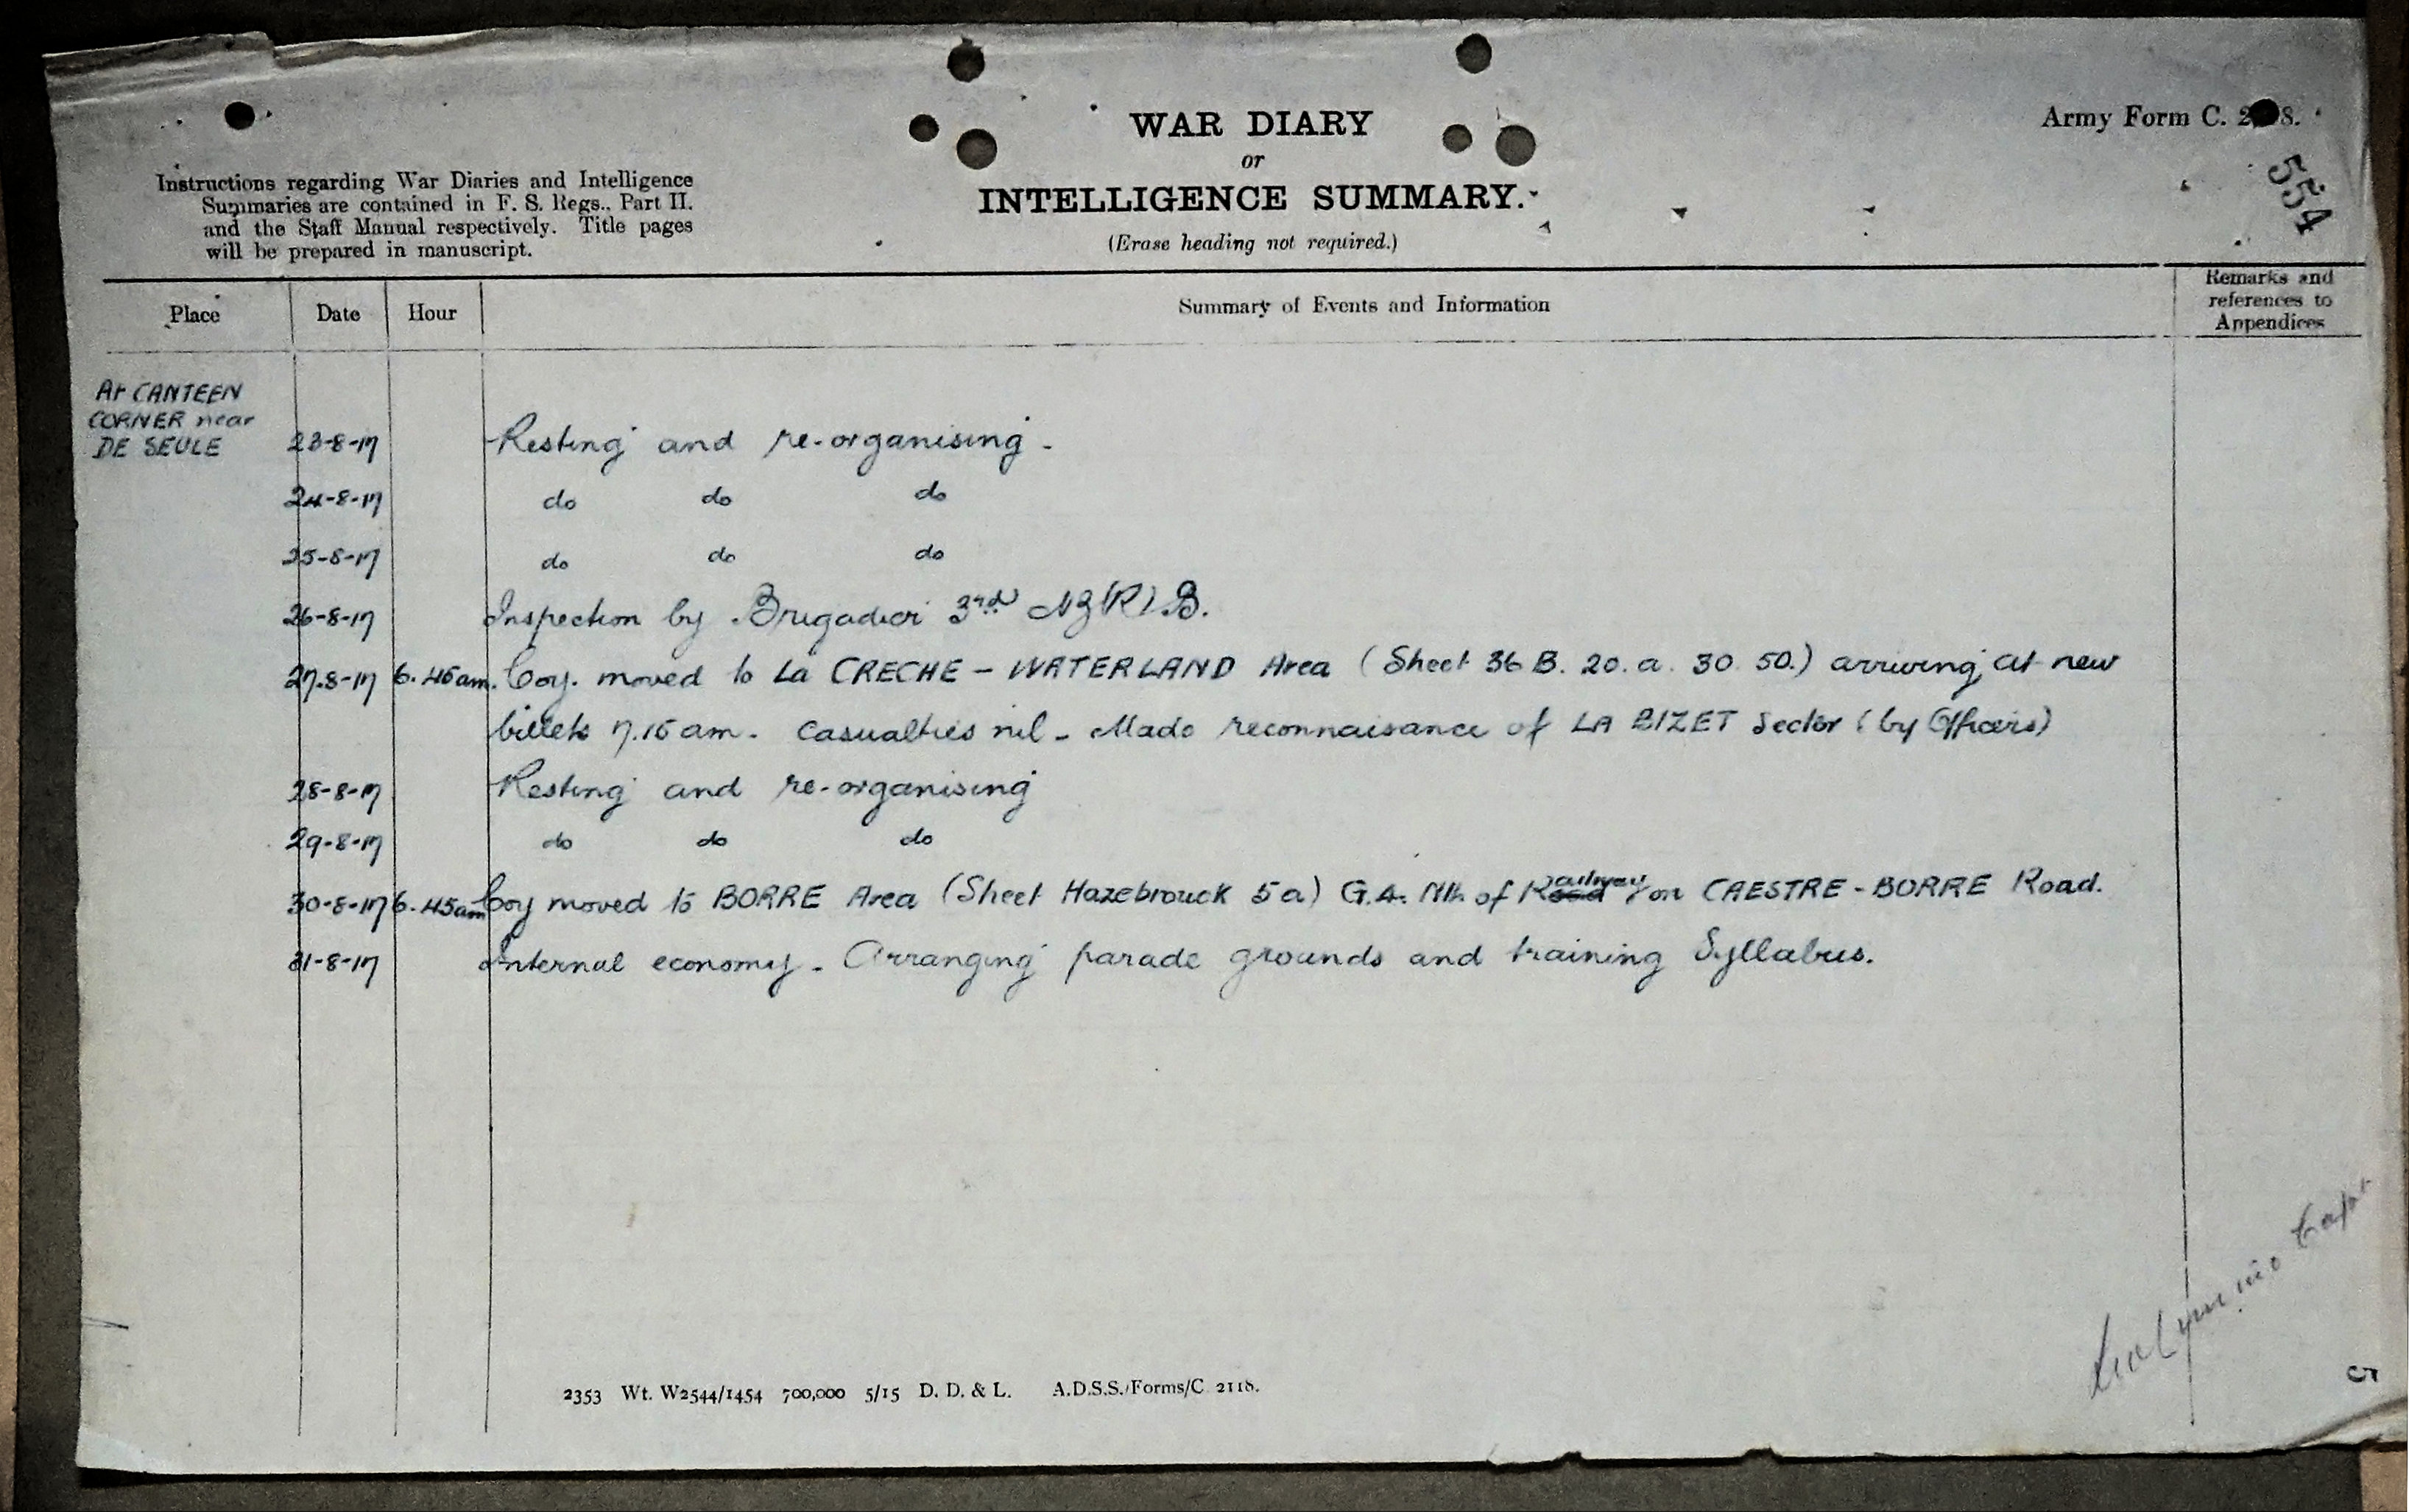 WAR DIARY
or
INTELLIGENCE SUMMARY.
(Erase heading not required.)
Army Form C.
554
Instructions regarding War Diaries and Intelligence
Summaries are contained in F. S. Regs., Part II.
and the Staff Manual respectively. Title pages
will be prepared in manuscript.
Place Date Hour Summary of Events and Information Remarks and
references to
Appendices
At CANTEEN
CORNER near
DE SEULE 23-8-17 Resting and re-organising -
24-8-17 do do do
25-8-17 do do do
26-8-17 Inspection by Brigadier 3rd NZ(R)B.
27.8-17 6.45am. Coy. moved to La CRECHE - WATERLAND Area (Sheet 36 B. 20. a. 30 50.) arriving at new
billets 7.15 am. Casualties nil - Made reconnaisance of LA BIZET Sector (by Officers)
28-8-17 Resting and re-organising
29-8-17 do do do
30-8-17 6.45am Coy moved to BORRE Area (Sheet Hazebrouck 5a) G.4. Nth of Railway on CAESTRE - BORRE Road.
31-8-17 Internal economy - Arranging parade grounds and training Syllabus.
Capt
5
2353 Wt. W2544/1454 700,000 5/15 D. D. & L. A.D.S.S./Forms/C. 2118.